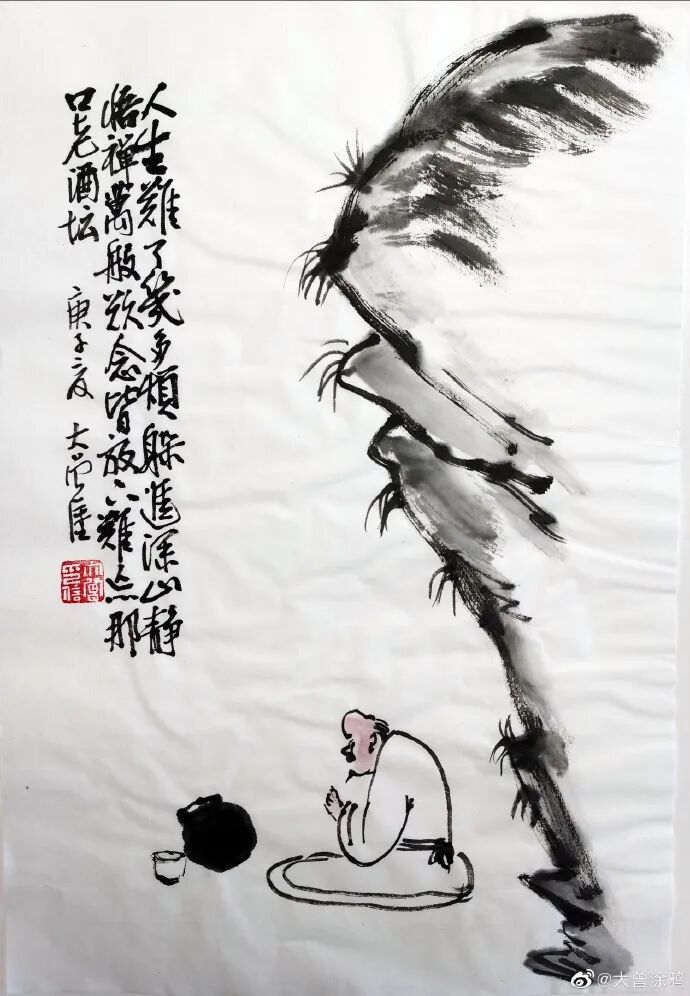 人生難了幾多煩躲進深山静
悟禪萬般欲念皆放下難忘那
口老酒坛
庚子夏 大曾畫
大曾印信
@大曾涂鸦